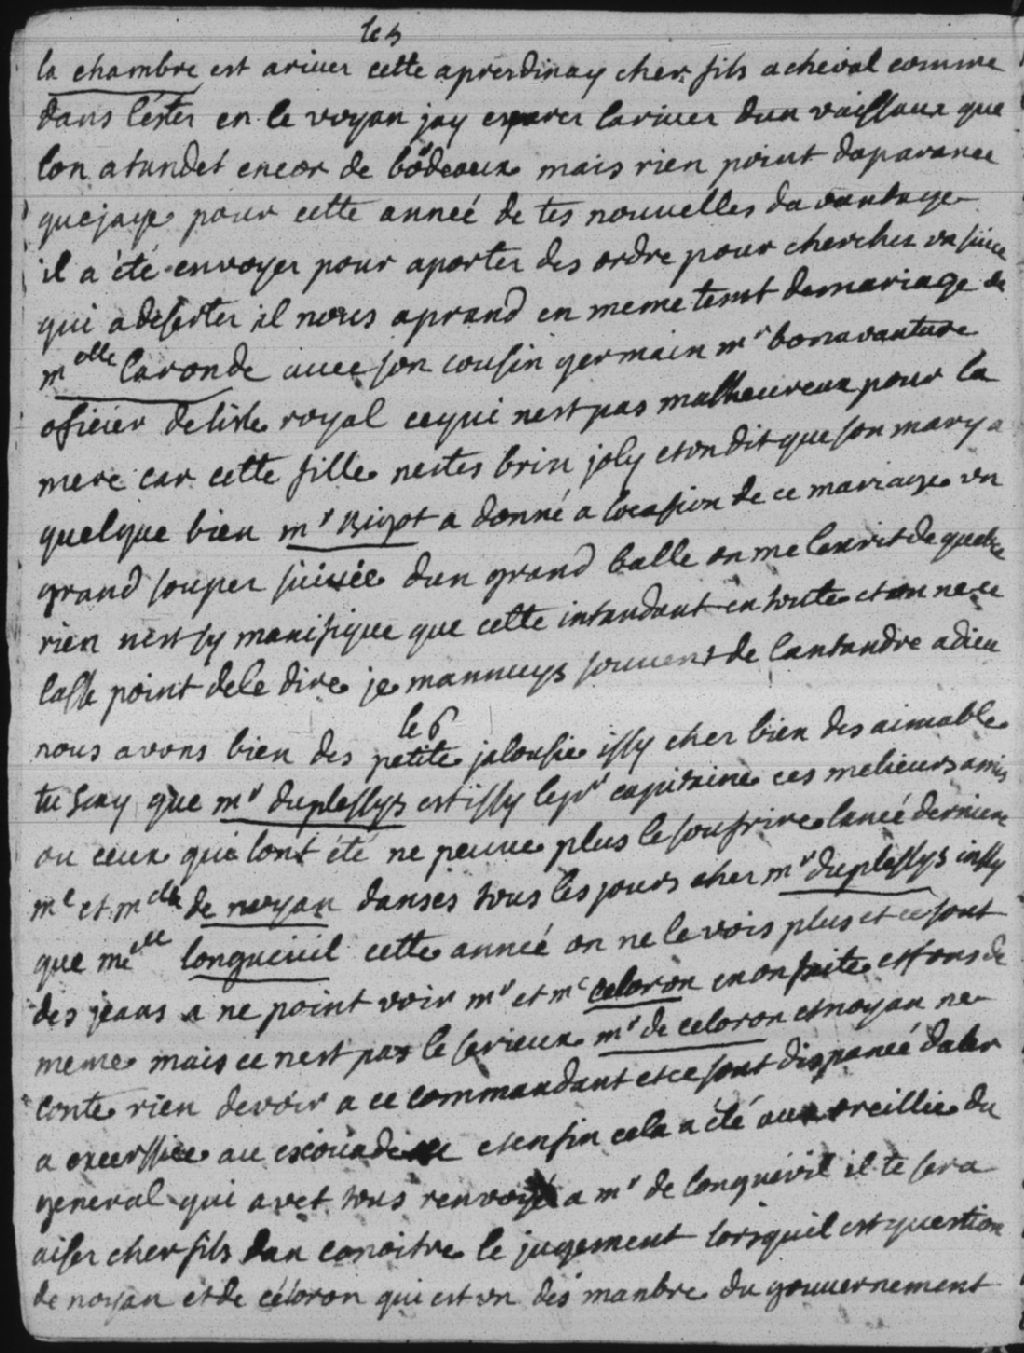 le 5
la chambre est ariver cette apresdinay cher fils a cheval comme
dans l'éstez en le voyan jay esperer lariver dun vaissaux que
lon atandet encor de bodeaux mais rien point daparance
que jaye pour cette anneé de tes nouvelles davantage
il a été envoyer pour aporter des ordre pour chercher un suisse
qui a deserter il nous aprand en meme temst de mariage de
melle laronde avec son cousin germain mr bonavanture
oficier de lisle royal ce qui nest pas malheureux pour la
mere car cette fille nestes brin joly et on dit que son mary a
quelque bien mr Bigot a donné a locasion de ce mariage un
grand souper suivie dun grand balle on me lecrit de quebec
rien nest sy manifique que cette intandant en toute et on ne ce
lasse point de le dire je mannuys souvent de lantandre adieu
le 6
nous avons bien des petite jalousie issy cher bien des aimable
tu scay que mr duplessys est issy le pr capitaine ces melieurs amis
ou ceux qui lont été ne peuve plus le soufrire laneé derniere
me et melle de noyan danses tous les jours cher mr duplessys insy
que me longueuil cette anneé on ne le vois plus et ce sont
des jeans a ne point voir mr et me celoron en on faite et fons de
meme mais ce nest pas le serieux mr de celoron et noyan ne
conte rien devoir a ce commandant et ce sont dispaneé daler
a excerssice au escouade et enfin cela a été aux oreillie du
general qui avet tous renvoyé a mr de longuévil il te sera
aiser cher fils dan conoitre le jugement lorsquil est question
de noyan et de céloron qui est un des manbre du gouvernement